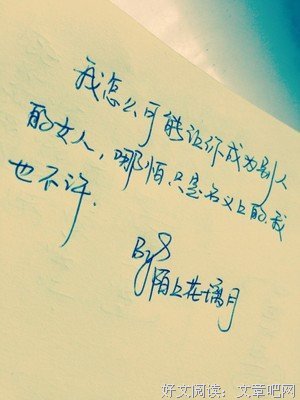 我怎么可能让你成为别人
的女人，哪怕只是名义上的我
也不许.
By
陌上花璃月
好文阅读：文章吧网